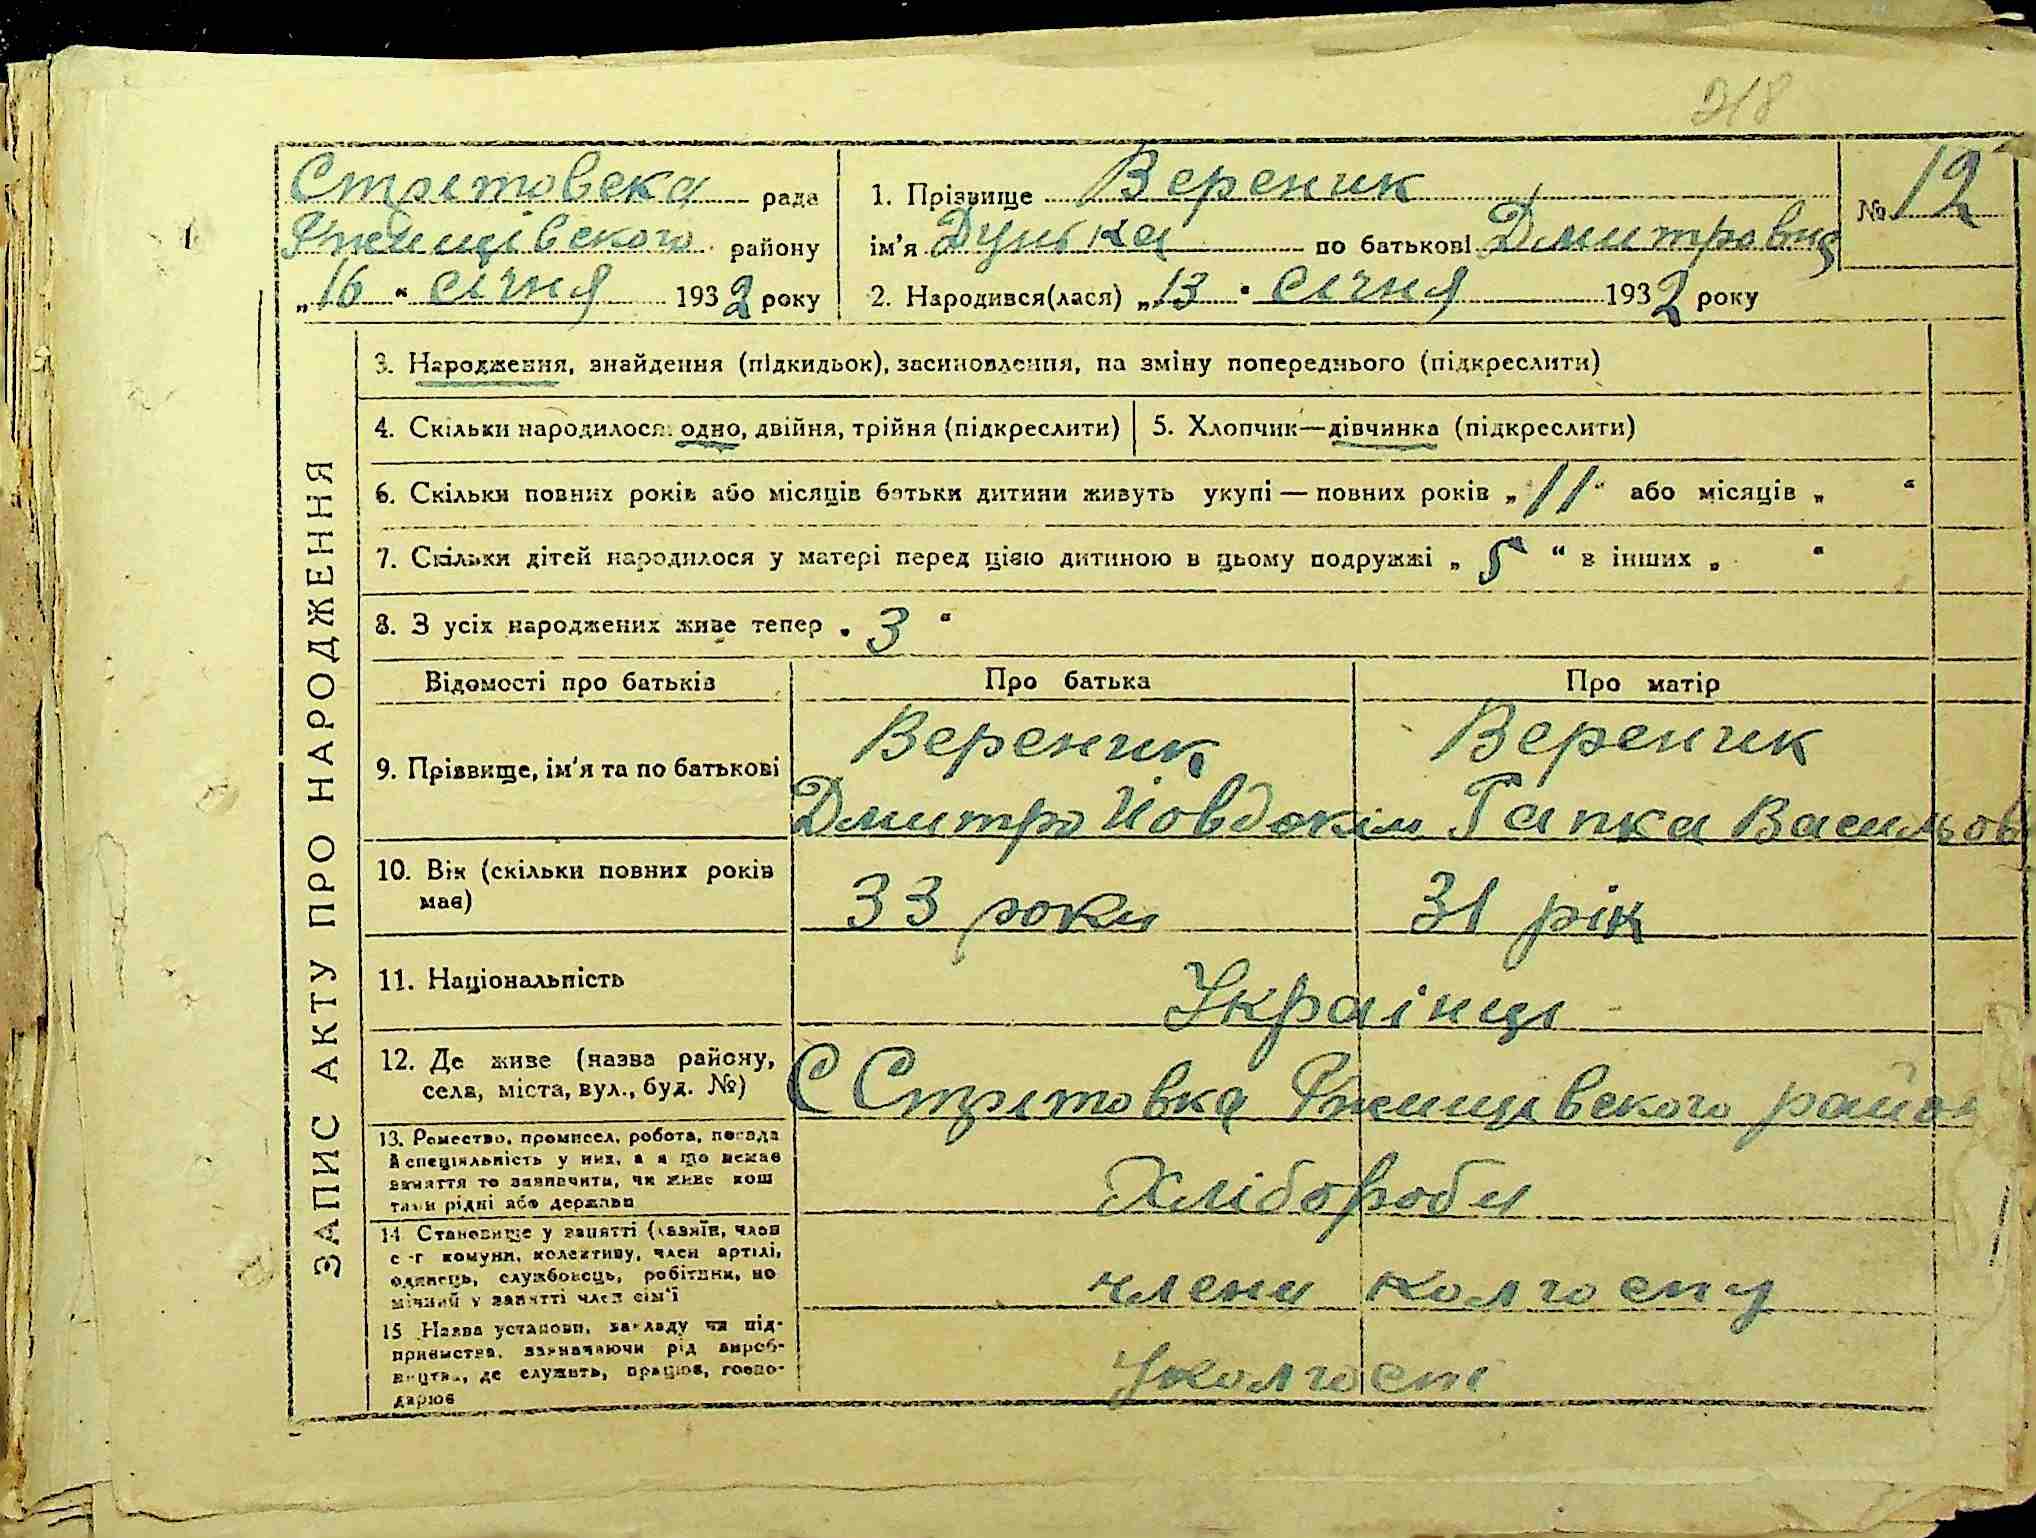 218
Стритовска рада
Ржищівського району
„16“ січня 1932 року
1. Прізвище Вереник
ім'я Дунька по батькові Дмитровна
2. Народився(лася) „13“ січня 1932 року
№ 12
ЗАПИС АКТУ ПРО НАРОДЖЕННЯ
3. Народження, знайдення (підкидьок), засиновлення, на зміну попереднього (підкреслити)
4. Скільки народилося: одно, двійня, трійня (підкреслити)
5. Хлопчик—дівчинка (підкреслити)
6. Скільки повних років або місяців батьки дитини живуть укупі — повних років „11“ або місяців „ “
7. Скільки дітей народилося у матері перед цією дитиною в цьому подружжі „5“ в інших „ “
8. З усіх народжених живе тепер „3“
Відомості про батьків Про батька Про матір
9. Прізвище, ім'я та по батькові
Вереник
Дмитро Йовдокім
Вереник
Гапка Васильов
10. Вік (скільки повних років
має)
33 роки
31 рік
11. Національність
Українці
12. Де живе (назва району,
села, міста, вул., буд. №)
С Стритовка Ржищівского район
13. Ремество, промисел, робота, посада
й спеціяльність у них, а я що немає
заняття то зазначити, чи живе кош
тами рідні або держави
Хлібороби
14 Становище у занятті (хазяїн, член
с-г комуни, колективу, член артілі,
одинець, службовець, робітник, по
мічний у занятті член сім'ї
члени колгоспу
15 Назва установи, закладу чи під-
приємства, зазначаючи рід вироб-
ництва, де служить, працює, госпо-
дарює
У колгоспі